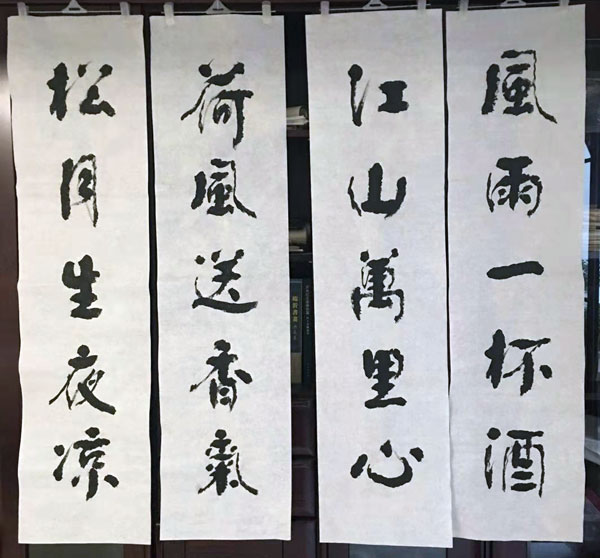 風雨一杯酒
江山萬里心
荷風送香氣
松月生夜凉